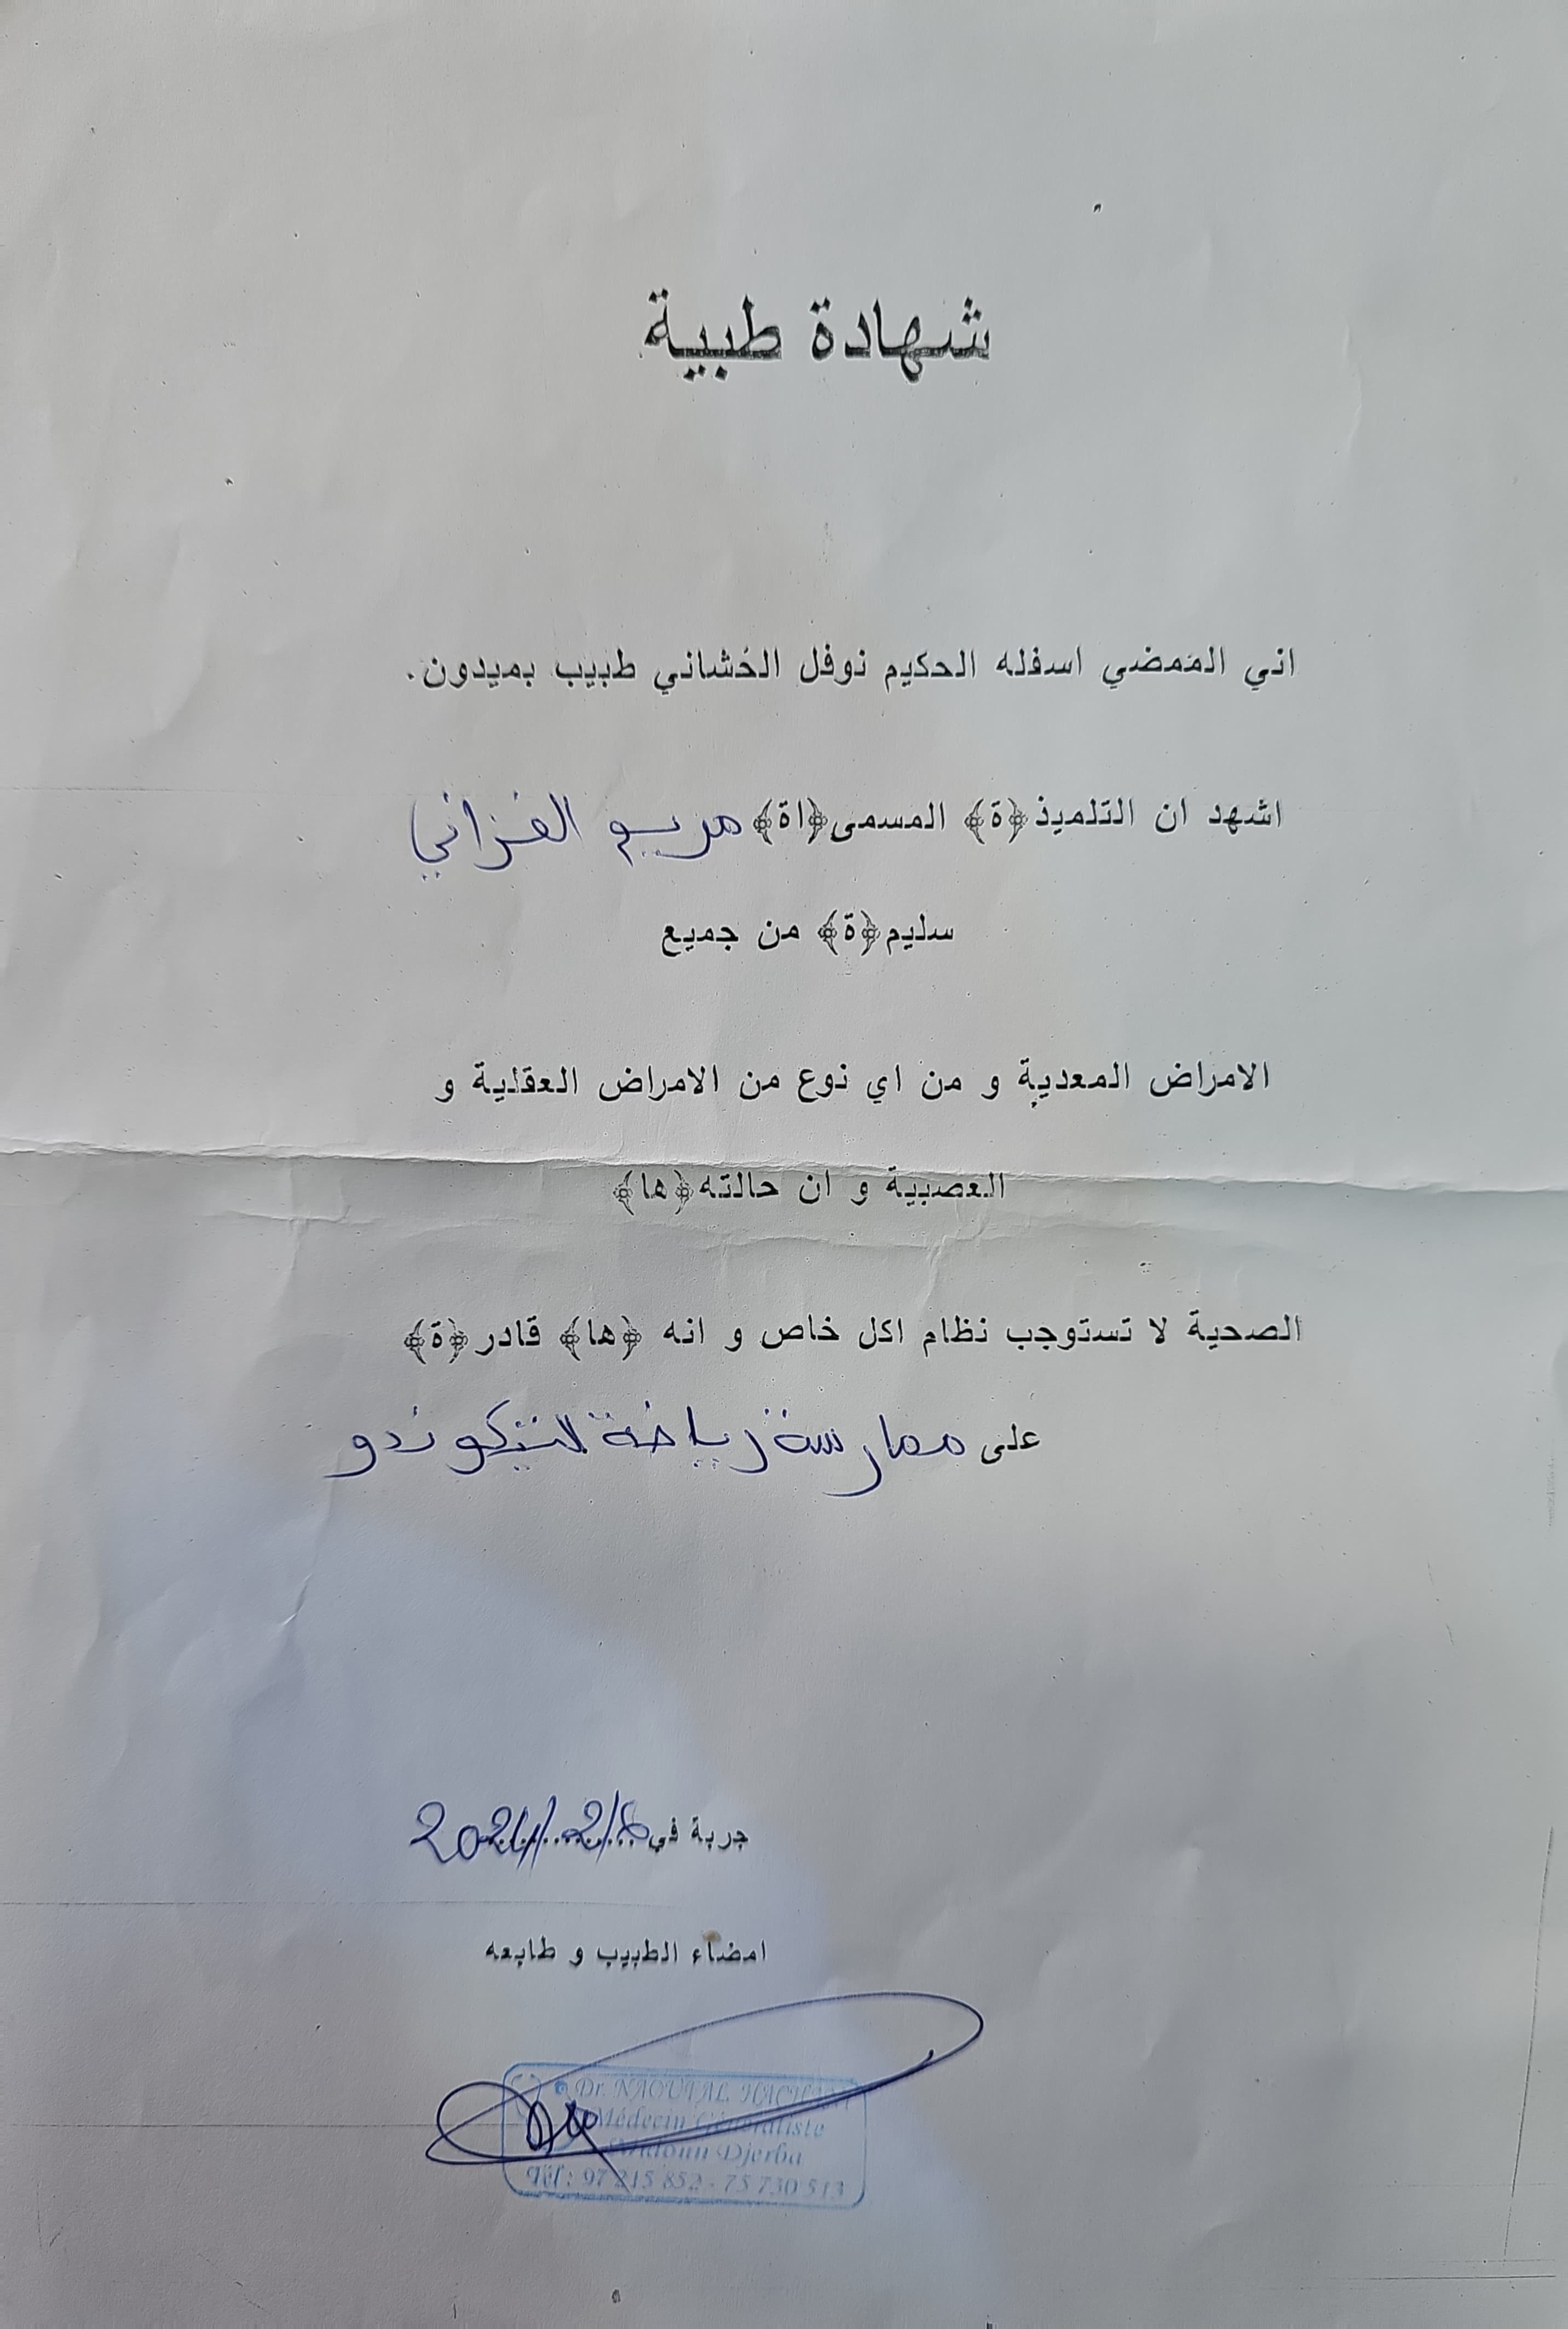 شهادة طبية
اني الممضي اسفله الحكيم نوفل الخشاني طبيب بميدون.
اشهد ان التلميذ﴿ة﴾ المسمى﴿اة﴾ مريم الفزاني
سليم﴿ة﴾ من جميع
الامراض المعدية و من اي نوع من الامراض العقلية و
العصبية و ان حالته﴿ها﴾
الصحية لا تستوجب نظام اكل خاص و انه ﴿ها﴾ قادر﴿ة﴾
على ممارسة رياضة
جربة في 2024/2/8
امضاء الطبيب و طابعه
Dr. NAOUFAL
Médecin Généraliste
Midoun Djerba
Tél : 97 215 852 - 75 730 513